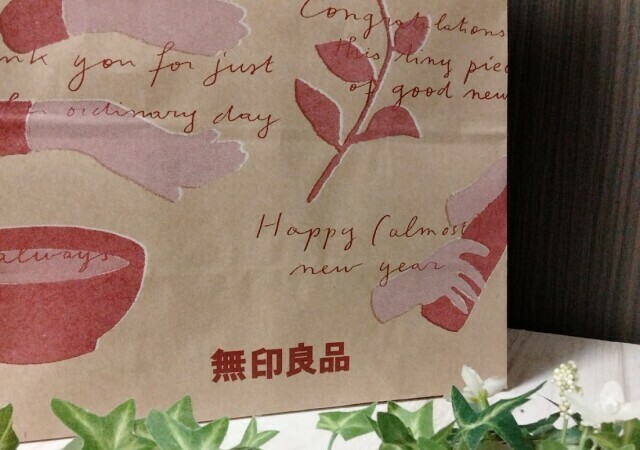 nk you for just
ordinary day
Congratulations
this tiny piec
of good new
always
Happy (almost
new year
無印良品